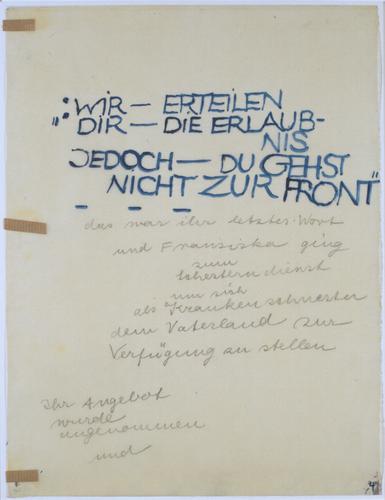 : WIR — ERTEILEN
„ DIR — DIE ERLAUB-
NIS
JEDOCH — DU GEHST
NICHT ZUR FRONT"
das war ihr letztes Wort
und Franziska ging
zum
dienst
um sich
als Krankenschwester
dem Vaterland zur
Verfügung zu stellen
Ihr Angebot
wurde
angenommen
und